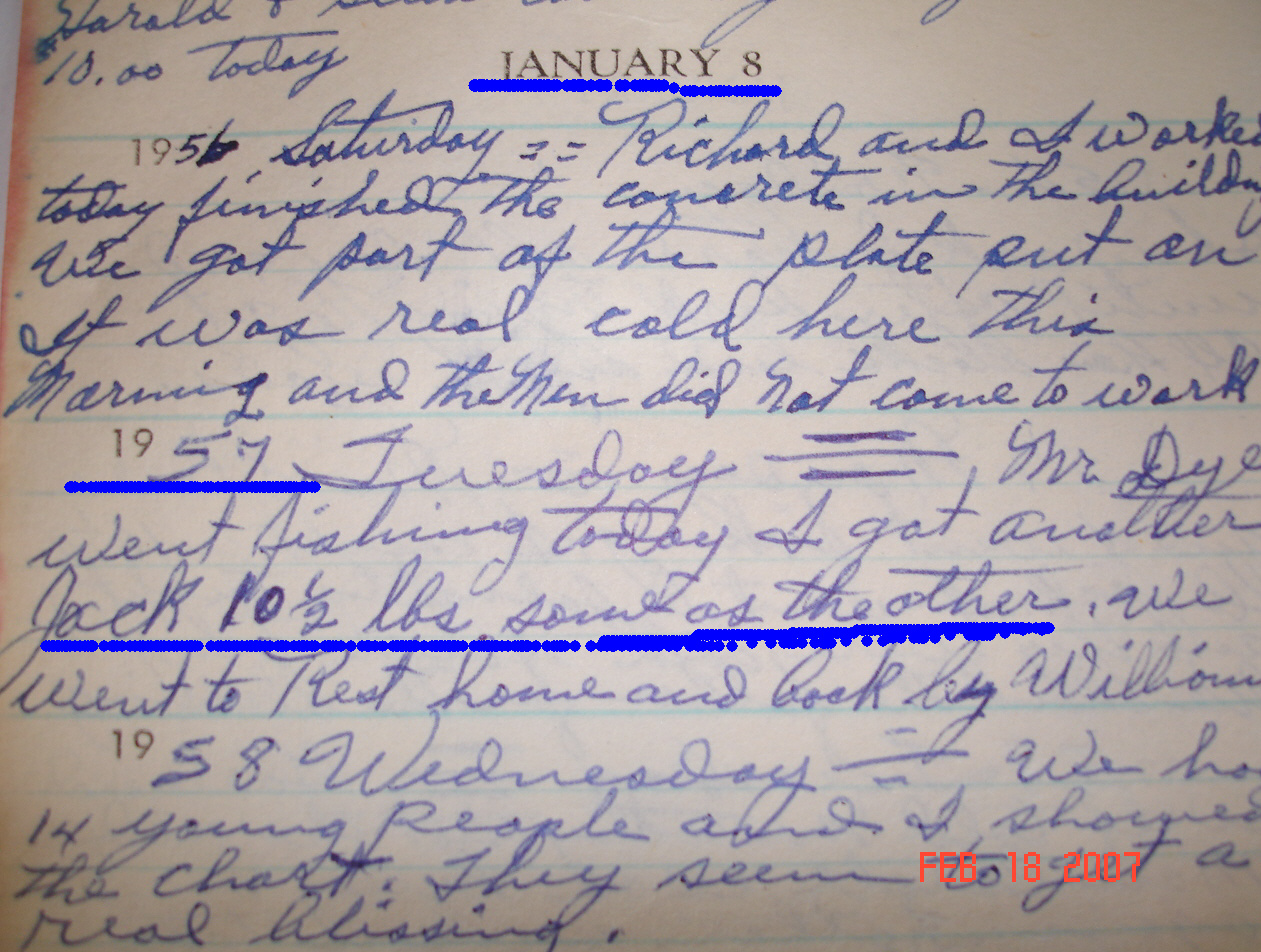 Harold &
10.00 today
JANUARY 8
1956 Saturday == Richard and I worked
today finished the concrete in the building
We got part of the plate put on
It was real cold here this
Morning and the Men did Not come to work
1957 Tuesday == Mr. Dye
went fishing today I got another
Jack 10½ lbs. same as the other. We
went to Rest home and back by
1958 Wednesday == We ha
14 young People and I showed
the chart. They seem to get a
real blessing.
FEB 18 2007